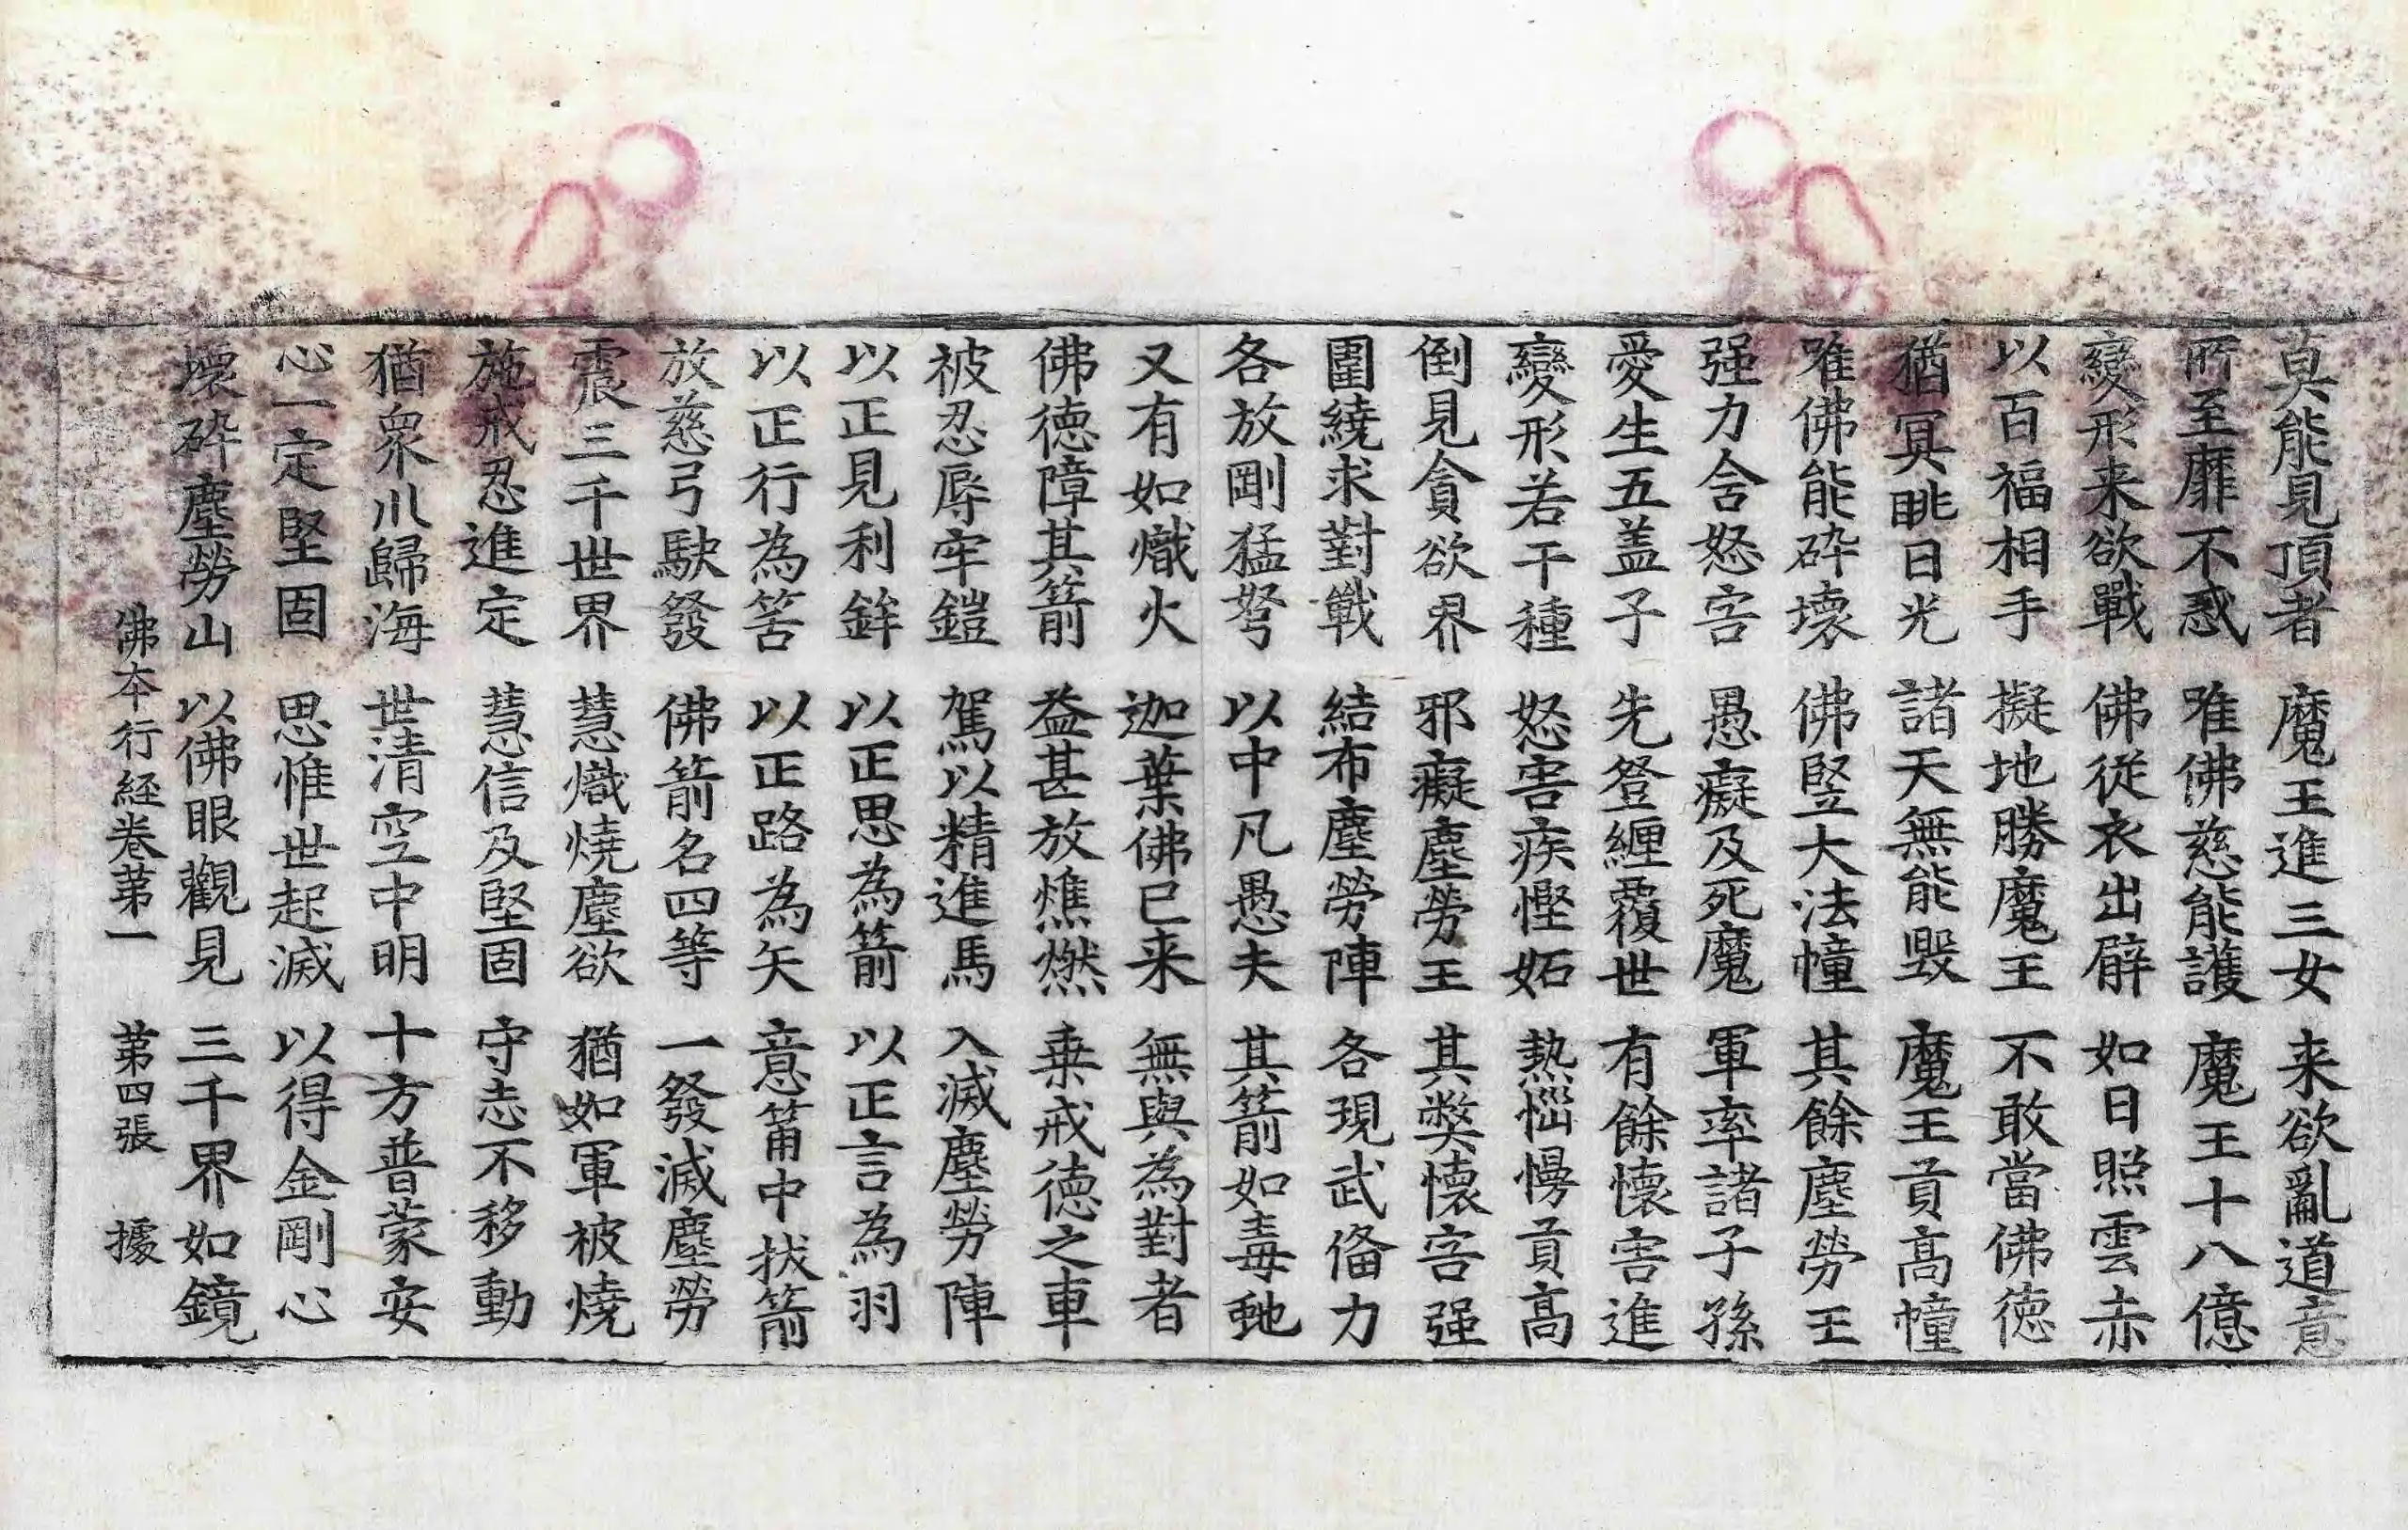 莫能見頂者 魔王進三女 来欲亂道意
所至靡不惑 唯佛慈能護 魔王十八億
變形来欲戰 佛從衣出臂 如日照雲赤
以百福相手 擬地勝魔王 不敢當佛德
猶冥眺日光 諸天無能毀 魔王貢高幢
唯佛能碎壞 佛竪大法幢 其餘塵勞王
强力含怒害 愚癡及死魔 軍率諸子孫
愛生五盖子 先登纏覆世 有餘懷害進
變形若干種 怒害疾慳妬 熱惱慢貢高
倒見貪欲界 邪癡塵勞王 其弊懷害强
圍繞求對戰 結布塵勞陣 各現武俻力
各放剛猛弩 以中凡愚夫 其箭如毒虵
又有如熾火 迦葉佛已来 無與為對者
佛德障其箭 益甚放燋燃 乗戒德之車
被忍辱牢鎧 駕以精進馬 入滅塵勞陣
以正見利鉾 以正思為箭 以正言為羽
以正行為筈 以正路為矢 意箭中拔箭
放慈弓駃發 佛箭名四等 一發滅塵勞
震三千世界 慧熾燒塵欲 猶如軍被燒
施戒忍進定 慧信及堅固 守志不移動
猶衆川歸海 世清空中明 十方普蒙安
心一定堅固 思惟世起滅 以得金剛心
壞碎塵勞山 以佛眼觀見 三千界如鏡
佛本行経卷第一 第四張 據